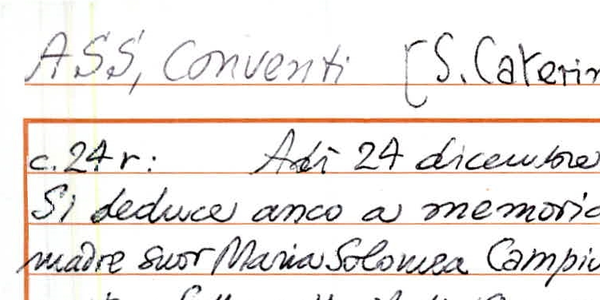 ASS, Conventi [S. Caterin
c. 24 r: Adì 24 dicembre
Si deduce anco a memoria
madre suor Maria Solomea Campiu